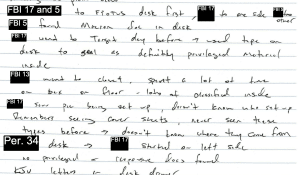 FBI 17 and 5 to FSOTUS desk first, FBI 17 to one side FBI 5 other
FBI 5 found Macron doc in desk
FBI 17 went to Tempt day before → used tape on
desk to seal as definitely privileged material
inside
FBI 13 went to closet, spent a lot of time
on box on floor - lots of classified inside
FBI 17 saw pic being set up, doesn't know who set-up
Remembers seeing cover sheets, never seen these
types before → doesn't know where they came from
Per. 34 desk → FBI 17 started on left side
no privileged or responsive docs found
KJU letters in desk drawer